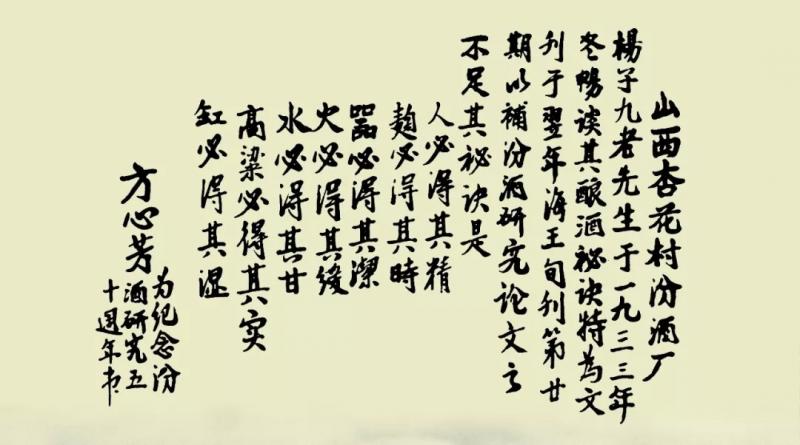 山西杏花村汾酒厂
楊子九老先生于一九三三年
冬暢谈其酿酒祕诀特为文
刋于翌年海王旬刋第廿
期以補汾酒研究论文之
不足其祕诀是
人必得其精
麯必得其時
器必得其潔
火必得其缓
水必得其甘
高粱必得其实
缸必得其湿
方心芳
为纪念汾
酒研究五
十週年书